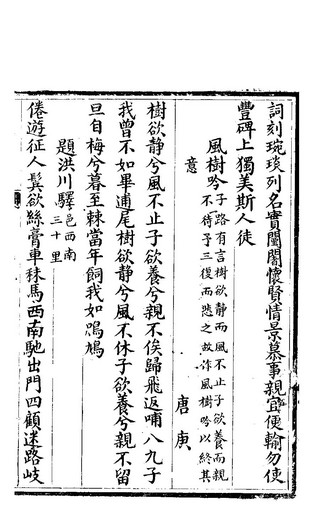 詞刻琬琰列名實闤闠懷賢情景慕事親宜便輸勿使
豐碑上獨美斯人徒
風樹吟子路有言樹欲静而風不止子欲養而親
不待予三復而悲之故作風樹吟以終其
意
唐庚
樹欲静兮風不止子欲養兮親不俟歸飛返哺八九子
我曾不如畢逋尾樹欲静兮風不休子欲養兮親不留
旦自梅兮暮至棘當年飼我如鳲鳩
題洪川驛邑西南
三十里
倦遊征人鬂欲絲膏車秣馬西南馳出門四顧迷路岐